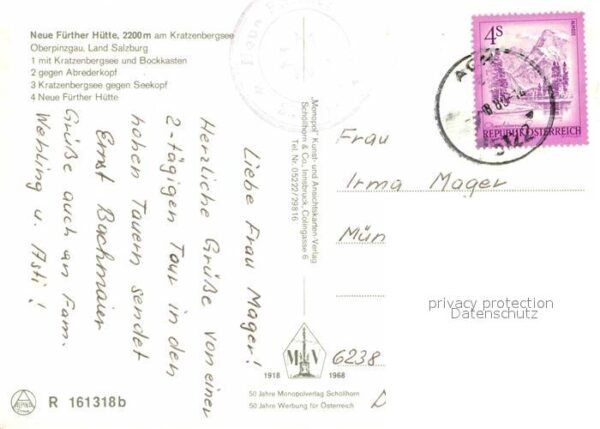 Neue Fürther Hütte, 2200m am Kratzenbergsee
Oberpinzgau, Land Salzburg
1 mit Kratzenbergsee und Bockkasten
2 gegen Abrederkopf
3 Kratzenbergsee gegen Seekopf
4 Neue Fürther Hütte
Liebe Frau Mager!
Herzliche Grüße von einer
2-tägigen Tour in den
hohen Tauern sendet
Ernst Bachmaier
Grüße auch an Fam.
Wehling u. Asti!
"Monopol" Kunst- und Ansichtskarten-Verlag
Schöllhorn & Co, Innsbruck, Colingasse 6
Tel. Nr. 05222/29816
4S
REPUBLIK ÖSTERREICH
5122
Frau
Irma Mager
Mün
privacy protection
Datenschutz
6238
MV
1918 1968
50 Jahre Monopolverlag Schöllhorn
50 Jahre Werbung für Österreich
R 161318b